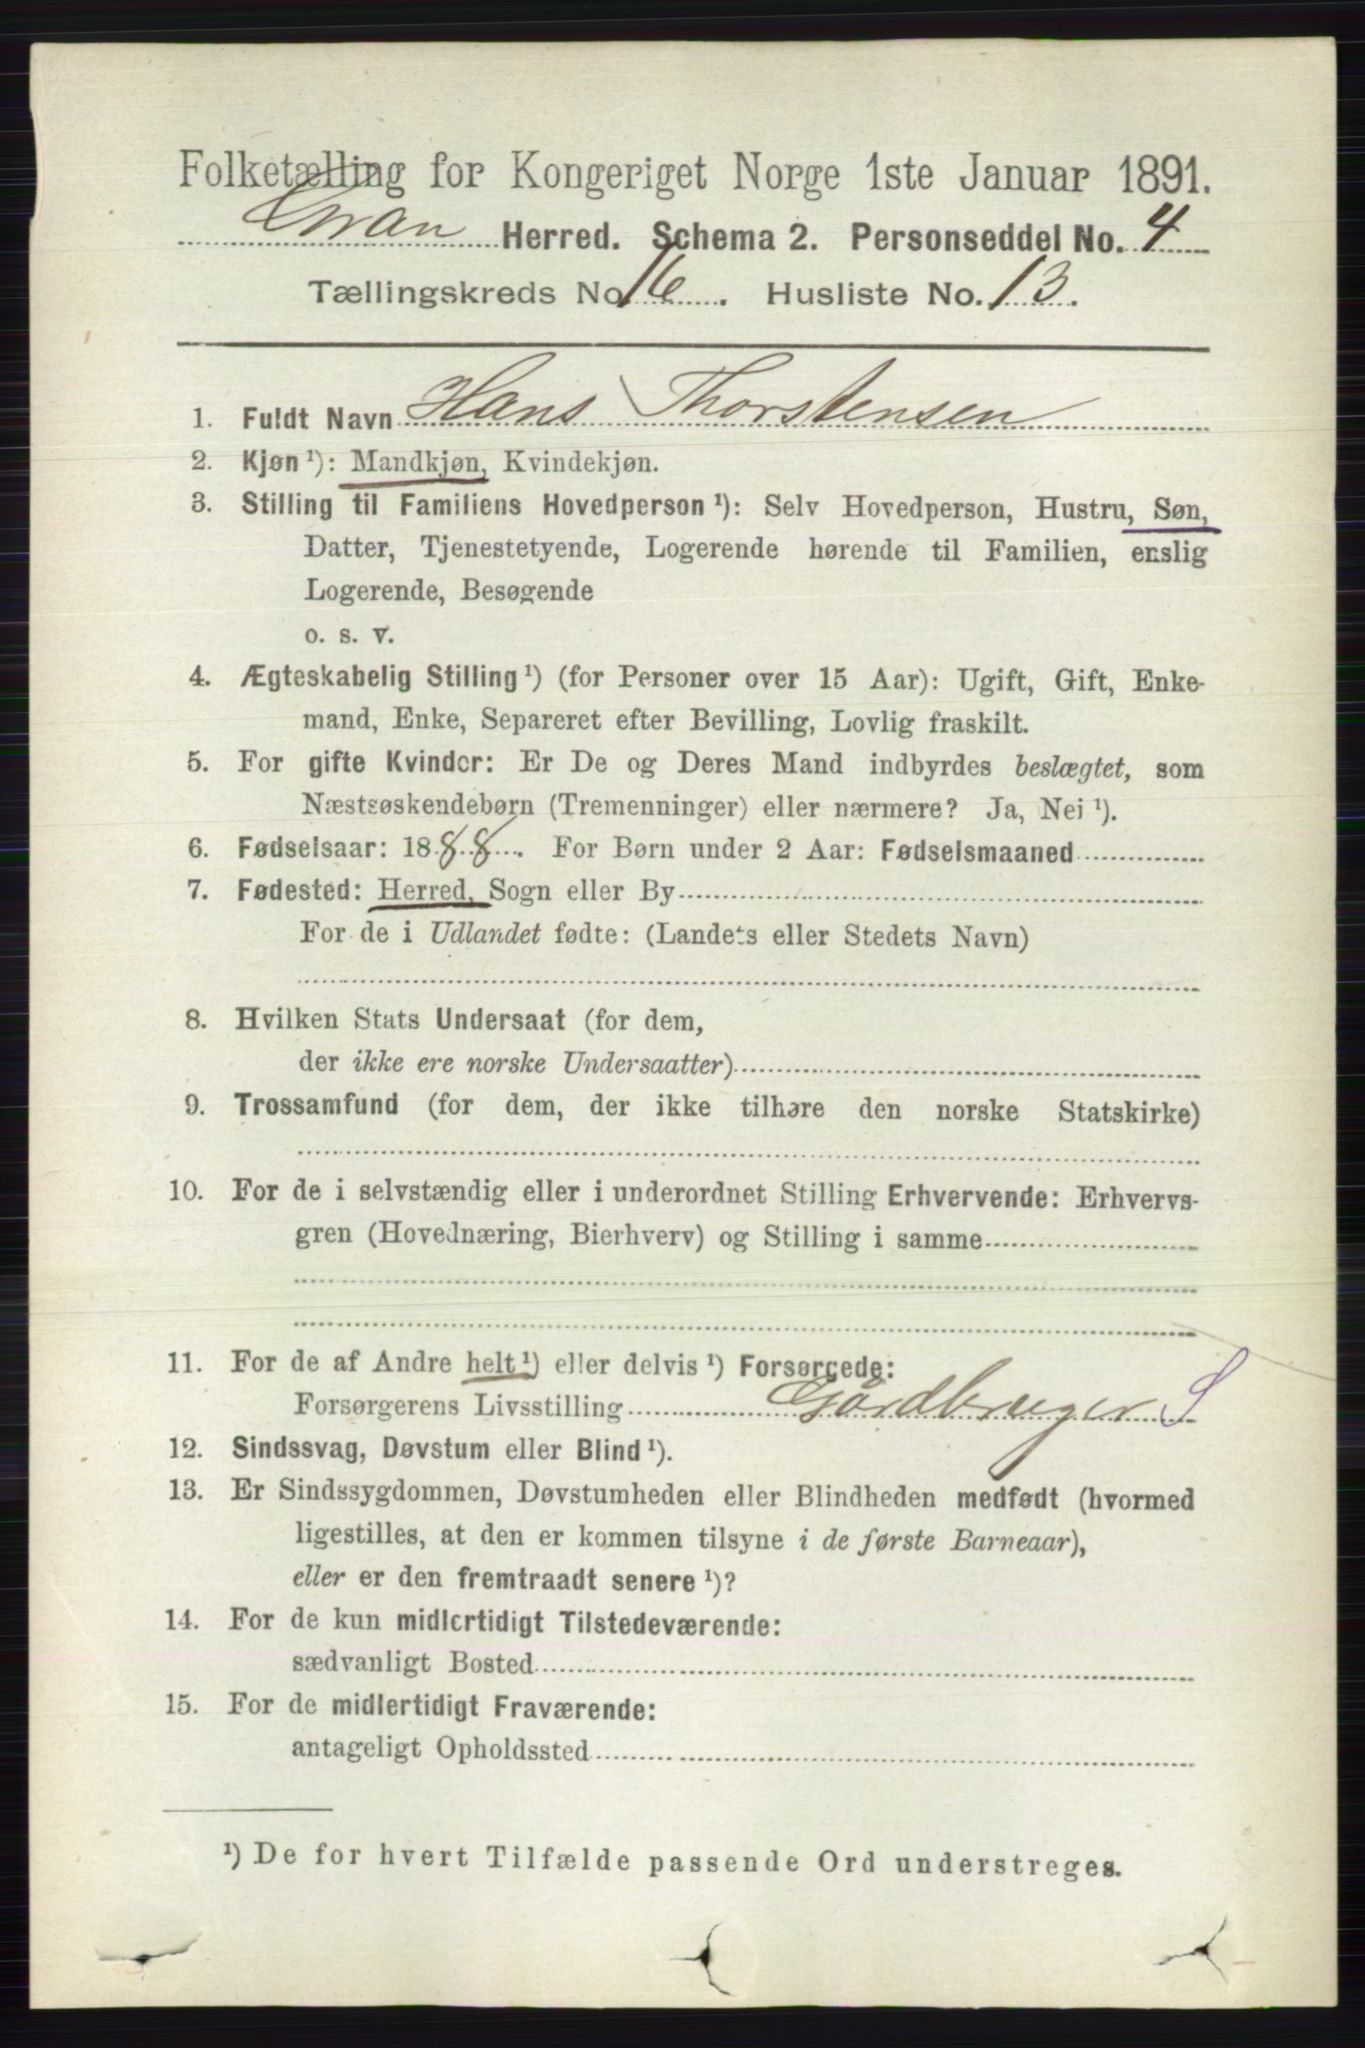 Folketælling for Kongeriget Norge 1ste Januar 1891.
Gran Herred. Schema 2. Personseddel No. 4
Tællingskreds No 16. Husliste No. 13.
1. Fuldt Navn Hans Thorstensen
2. Kjøn ¹): Mandkjøn, Kvindekjøn.
3. Stilling til Familiens Hovedperson ¹): Selv Hovedperson, Hustru, Søn,
Datter, Tjenestetyende, Logerende hørende til Familien, enslig
Logerende, Besøgende
o. s. v.
4. Ægteskabelig Stilling ¹) (for Personer over 15 Aar): Ugift, Gift, Enke-
mand, Enke, Separeret efter Bevilling, Lovlig fraskilt.
5. For gifte Kvinder: Er De og Deres Mand indbyrdes beslægtet, som
Næstsøskendebørn (Tremenninger) eller nærmere? Ja, Nei ¹).
6. Fødselsaar: 1888. For Børn under 2 Aar: Fødselsmaaned
7. Fødested: Herred, Sogn eller By
For de i Udlandet fødte: (Landets eller Stedets Navn)
8. Hvilken Stats Undersaat (for dem,
der ikke ere norske Undersaatter)
9. Trossamfund (for dem, der ikke tilhøre den norske Statskirke)
10. For de i selvstændig eller i underordnet Stilling Erhvervende: Erhvervs-
gren (Hovednæring, Bierhverv) og Stilling i samme
11. For de af Andre helt ¹) eller delvis ¹) Forsørgede:
Forsørgerens Livsstilling Gårdbruger S
12. Sindssvag, Døvstum eller Blind ¹).
13. Er Sindssygdommen, Døvstumheden eller Blindheden medfødt (hvormed
ligestilles, at den er kommen tilsyne i de første Barneaar),
eller er den fremtraadt senere ¹)?
14. For de kun midlertidigt Tilstedeværende:
sædvanligt Bosted
15. For de midlertidigt Fraværende:
antageligt Opholdssted
¹) De for hvert Tilfælde passende Ord understreges.